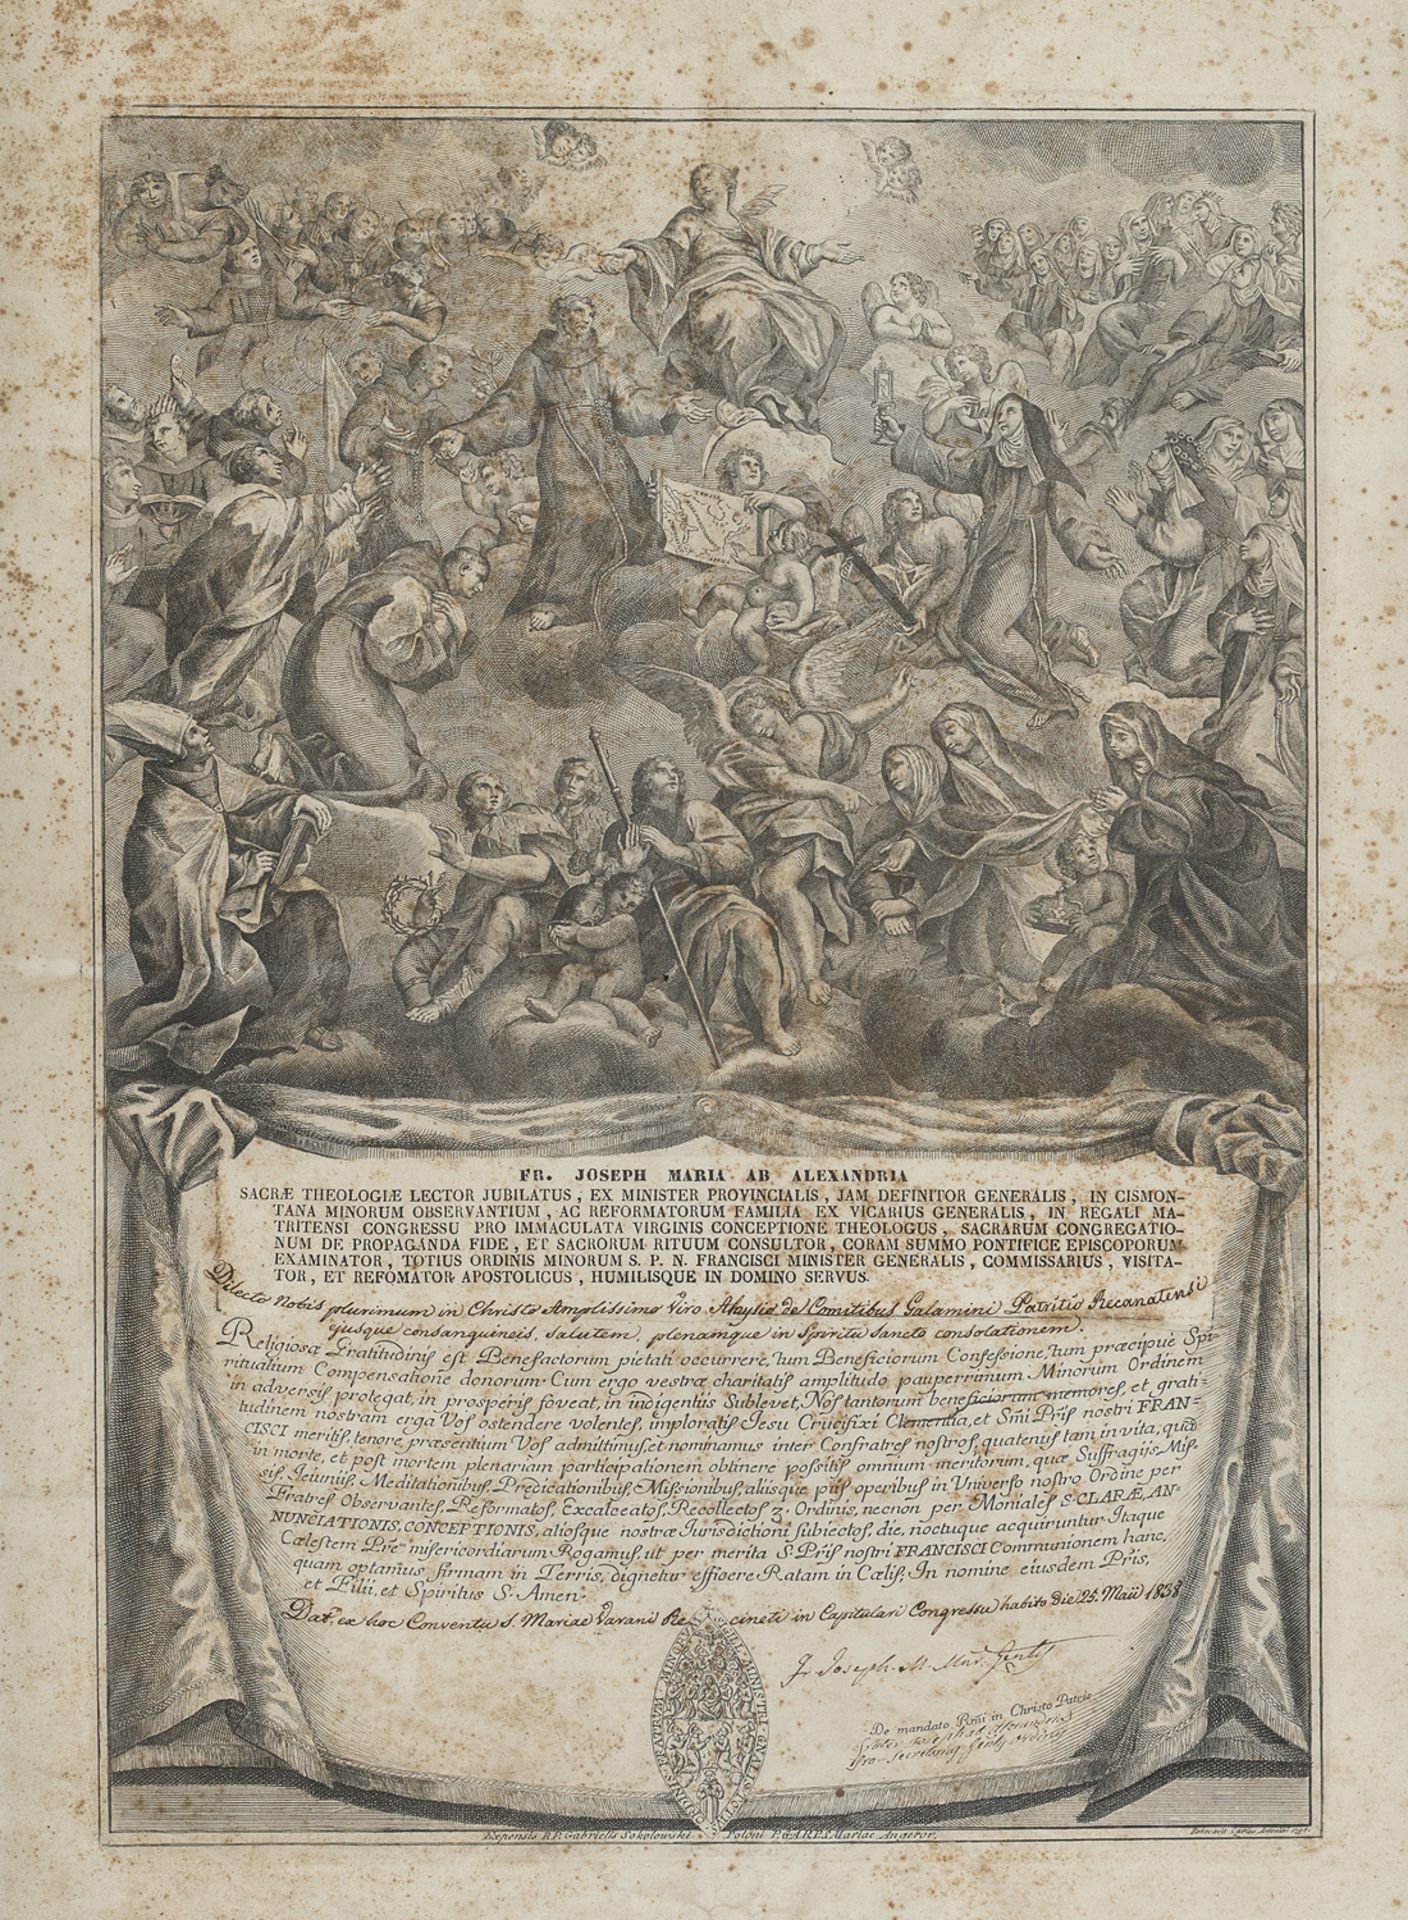 FR. JOSEPH MARIA AB ALEXANDRIA
SACRÆ THEOLOGIÆ LECTOR JUBILATUS, EX MINISTER PROVINCIALIS, JAM DEFINITOR GENERALIS, IN CISMON-
TANA MINORUM OBSERVANTIUM, AC REFORMATORUM FAMILIA EX VICARIUS GENERALIS, IN REGALI MA-
TRITENSI CONGRESSU PRO IMMACULATA VIRGINIS CONCEPTIONE THEOLOGUS, SACRARUM CONGREGATIO-
NUM DE PROPAGANDA FIDE, ET SACRORUM RITUUM CONSULTOR, CORAM SUMMO PONTIFICE EPISCOPORUM
EXAMINATOR, TOTIUS ORDINIS MINORUM S. P. N. FRANCISCI MINISTER GENERALIS, COMMISSARIUS, VISITA-
TOR, ET REFOMATOR APOSTOLICUS, HUMILISQUE IN DOMINO SERVUS.
Dilecto Nobis plurimum in Christo Amplissimo Viro Aloysio de Comitibus Galamini Patritio Recanatensi
ejusque consanguineis, salutem, plenamque in Spiritu Sancto consolationem.
Religiosæ Gratitudinis est Benefactorum pietati occurrere, tum Beneficiorum Confessione, tum præcipuè Spi-
ritualium Compensatione donorum. Cum ergo vestræ charitatis amplitudo pauperrimum Minorum Ordinem
in adversis protegat, in prosperis foveat, in indigentiis Sublevet, Nos tantorum beneficiorum memores, et grati-
tudinem nostram erga Vos ostendere volentes, imploratis Jesu Crucifixi Clementia, et Smi Pris nostri FRAN-
CISCI meritis, tenore præsentium Vos admittimus, et nominamus inter Confratres nostros, quatenus tam in vita, quàm
in morte, et post mortem plenariam participationem obtinere possitis omnium meritorum, quæ Suffragijs, Mis-
sis, Jeiuniis, Meditationibus, Prædicationibus, Missionibus, aliisque piis operibus in Universo nostro Ordine per
Fratres Observantes, Reformatos, Excalceatos, Recollectos 3. Ordinis, necnon per Moniales S. CLARÆ, AN-
NUNCIATIONIS, CONCEPTIONIS, aliosque nostræ Jurisdictioni subiectos, die, noctuque acquiruntur. Itaque
Cælestem Prem misericordiarum Rogamus, ut per merita S. Pris nostri FRANCISCI Communionem hanc,
quam optamus firmam in Terris, dignetur efficere Ratam in Cælis; In nomine eiusdem Pris,
et Filii, et Spiritus S. Amen.
Dat. ex hoc Conventu S. Mariae Varani Recineti in Capitulari Congressu habito die 25. Maii 1838
Fr. Joseph M. Min. Gentis
SIGILL. MINISTRI GNALIS TOTIUS ORDINIS FRATRVM MINORVM
De mandato Rmi in Christo Patris
Frater Joseph ab Alexandria
Pro-Secretarius Gentis Ordinis
Expensis R.P. Gabrielis Sokolowski Poloni P. GARES. Mariae Angeror.